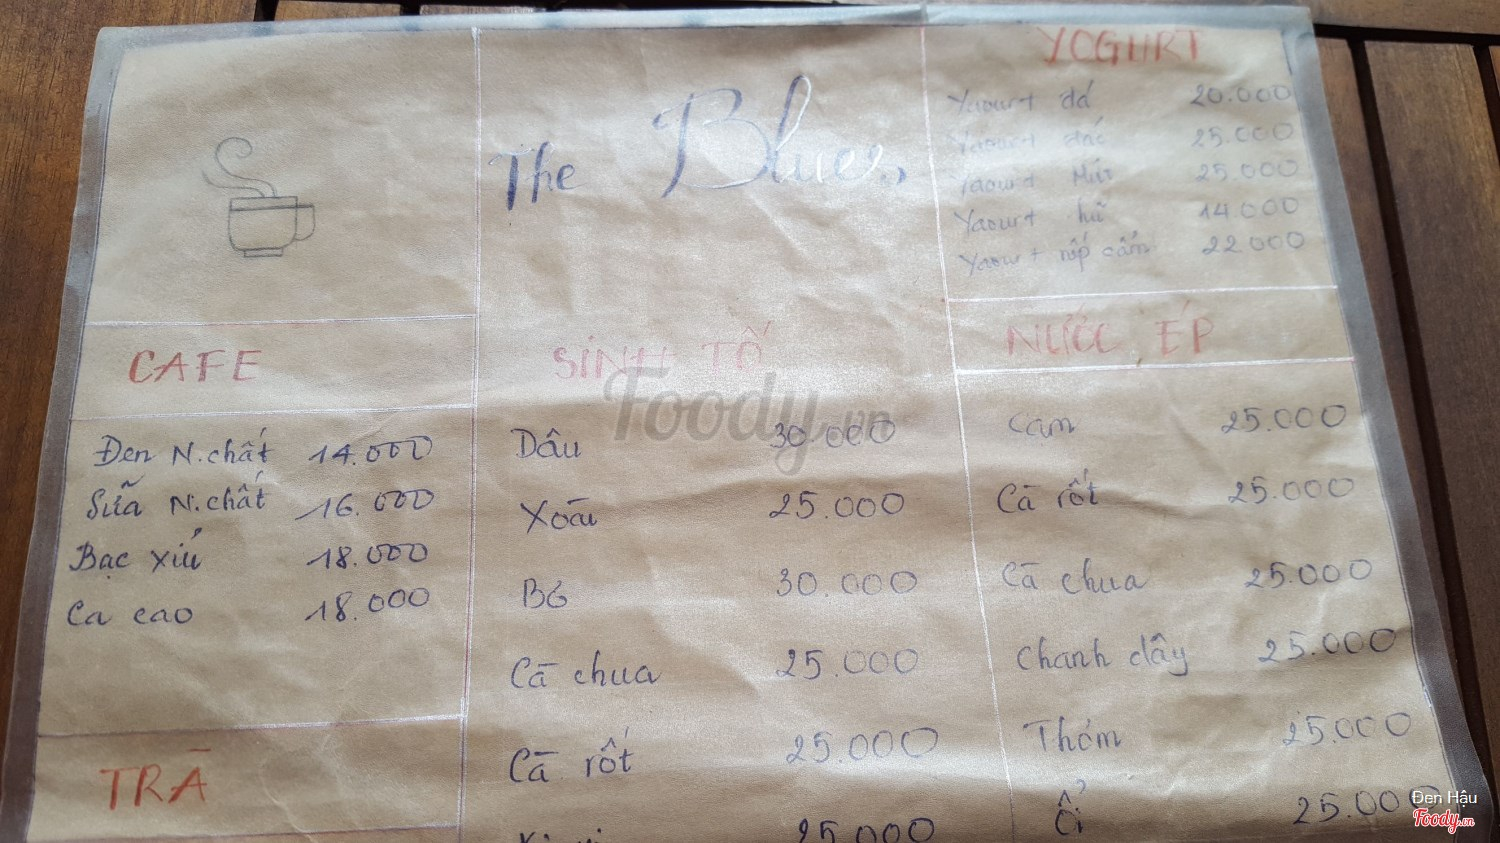 The Blues
CAFE
Đen N.chất 14.000
Sữa N.chất 16.000
Bạc xỉu 18.000
Ca cao 18.000
TRÀ
SINH TỐ
Dâu 30.000
Xoài 25.000
Bơ 30.000
Cà chua 25.000
Cà rốt 25.000
25.000
YOGURT
Yaourt đá 20.000
Yaourt đác 25.000
Yaourt Mít 25.000
Yaourt hũ 14.000
Yaourt nếp cẩm 22.000
NƯỚC ÉP
Cam 25.000
Cà rốt 25.000
Cà chua 25.000
Chanh dây 25.000
Thơm 25.000
Ổi 25.000
Foody.vn
Đen Hậu
Foody.vn